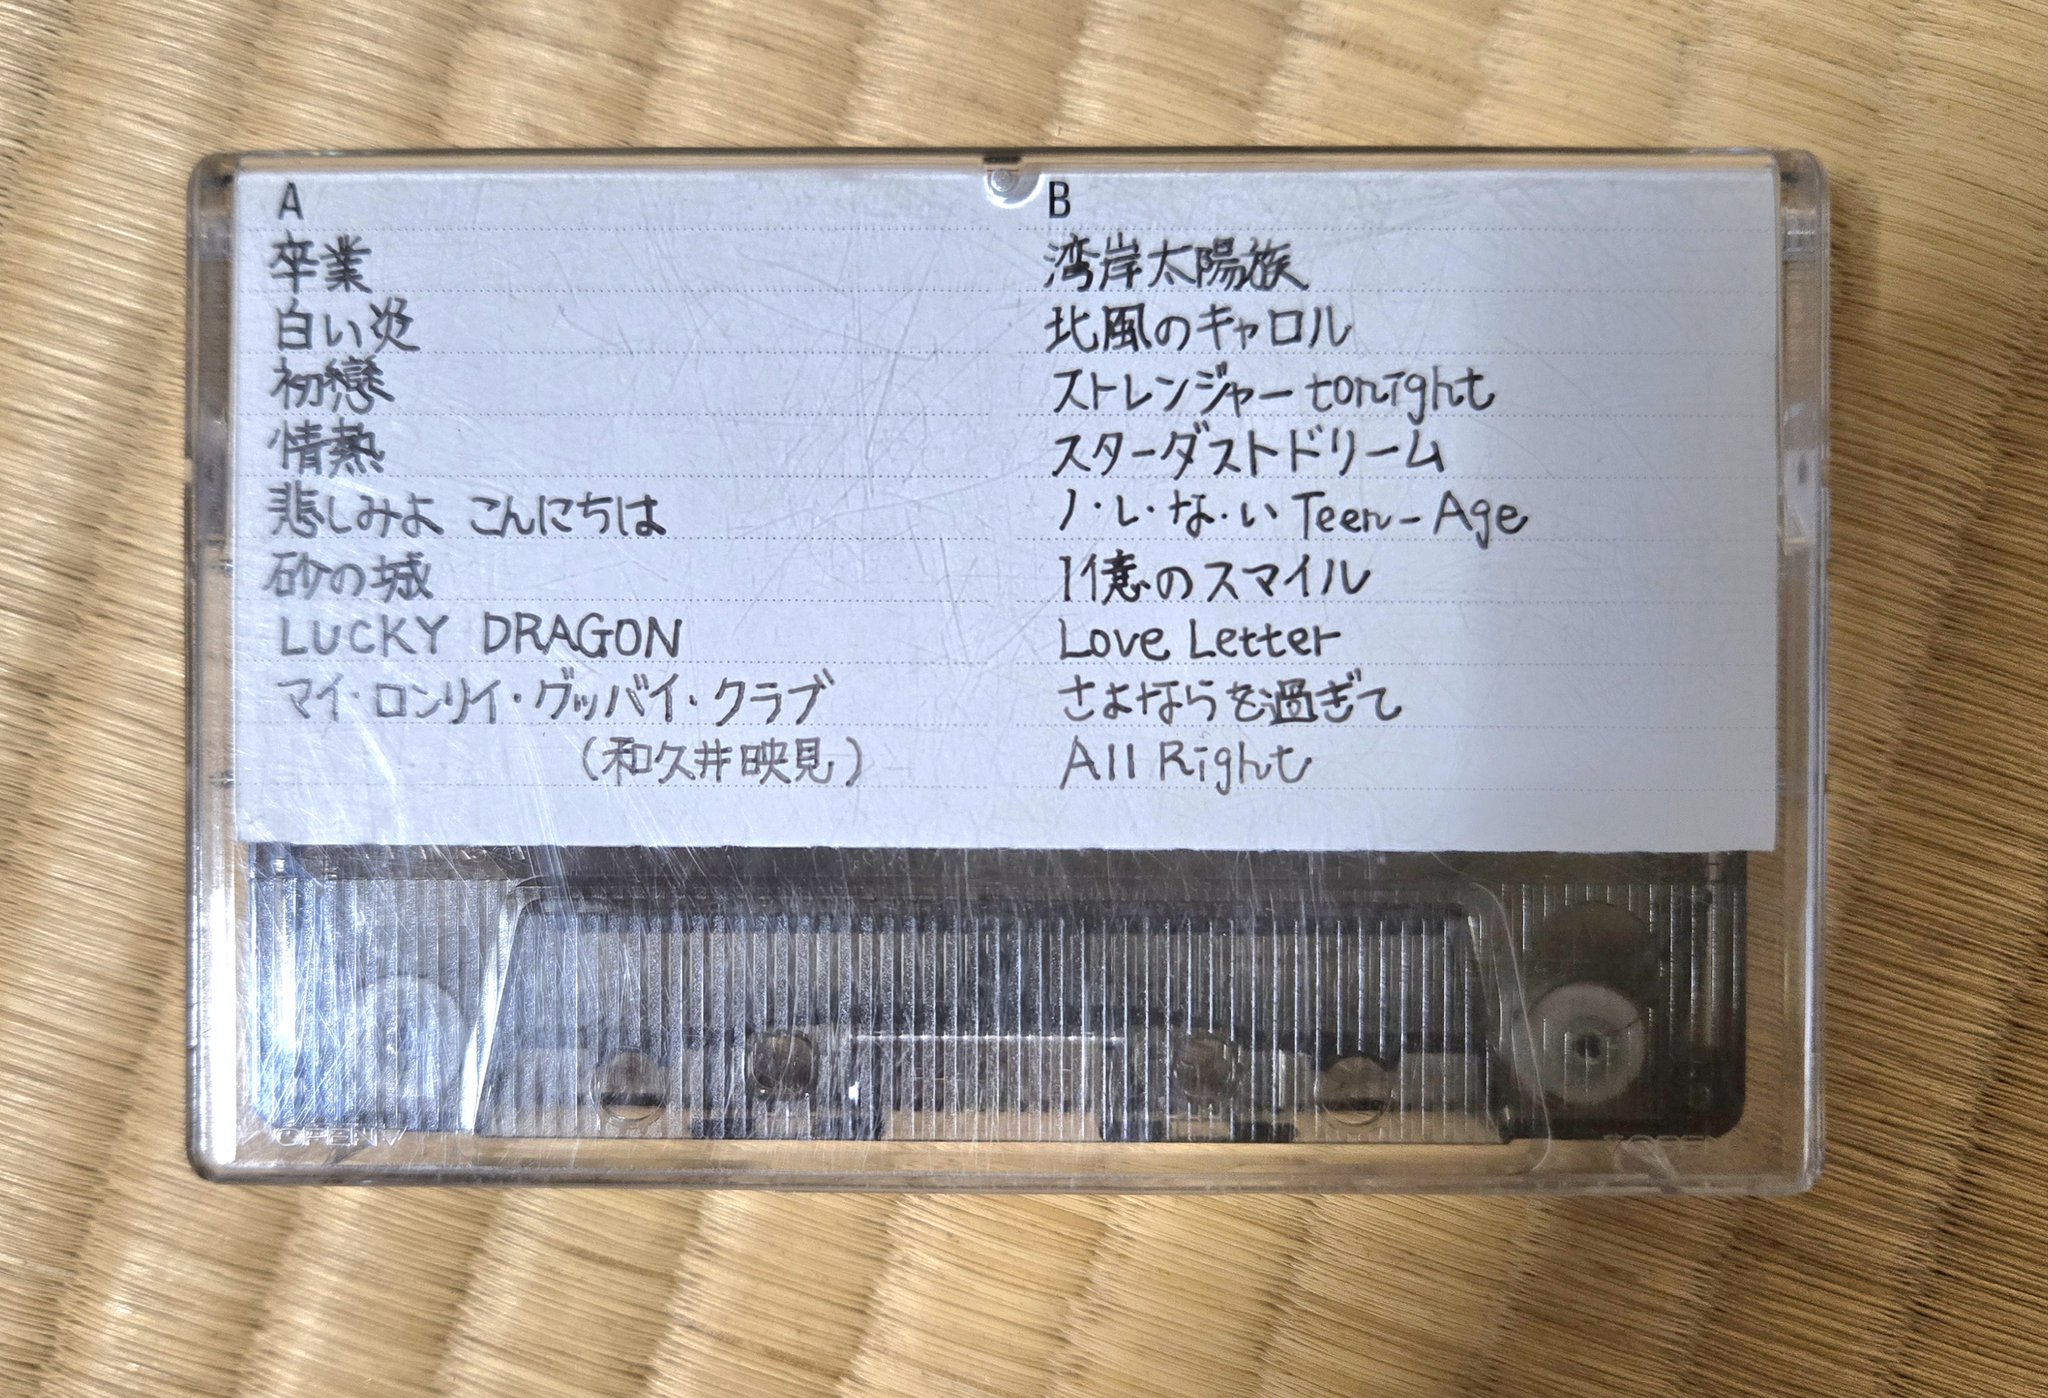 A
卒業
白い炎
初戀
情熱
悲しみよ こんにちは
砂の城
LUCKY DRAGON
マイ・ロンリイ・グッバイ・クラブ
(和久井映見)
B
湾岸太陽族
北風のキャロル
ストレンジャーtonight
スターダストドリーム
ノ・レ・な・い Teen-Age
1億のスマイル
Love Letter
さよならを過ぎて
All Right
OPEN
OPEN